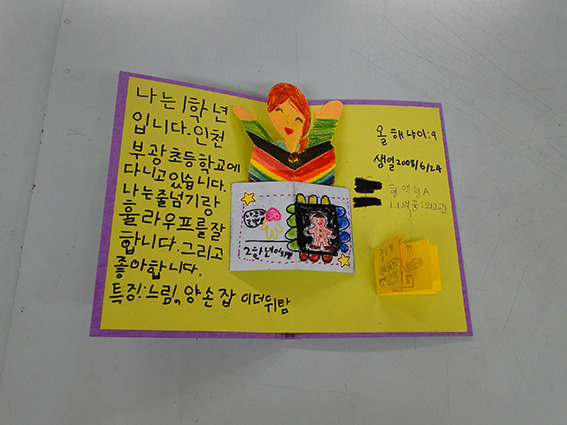 나는1학년
입니다.인천
부광초등학교에
다니고있습니다.
나는줄넘기랑
훌라우프를잘
합니다.그리고
좋아합니다.
특징:느림, 양손잡 이더뷔탐
2학년
올해나이:9
생일2008/6/24
혈액형A
나의꿈:외교관